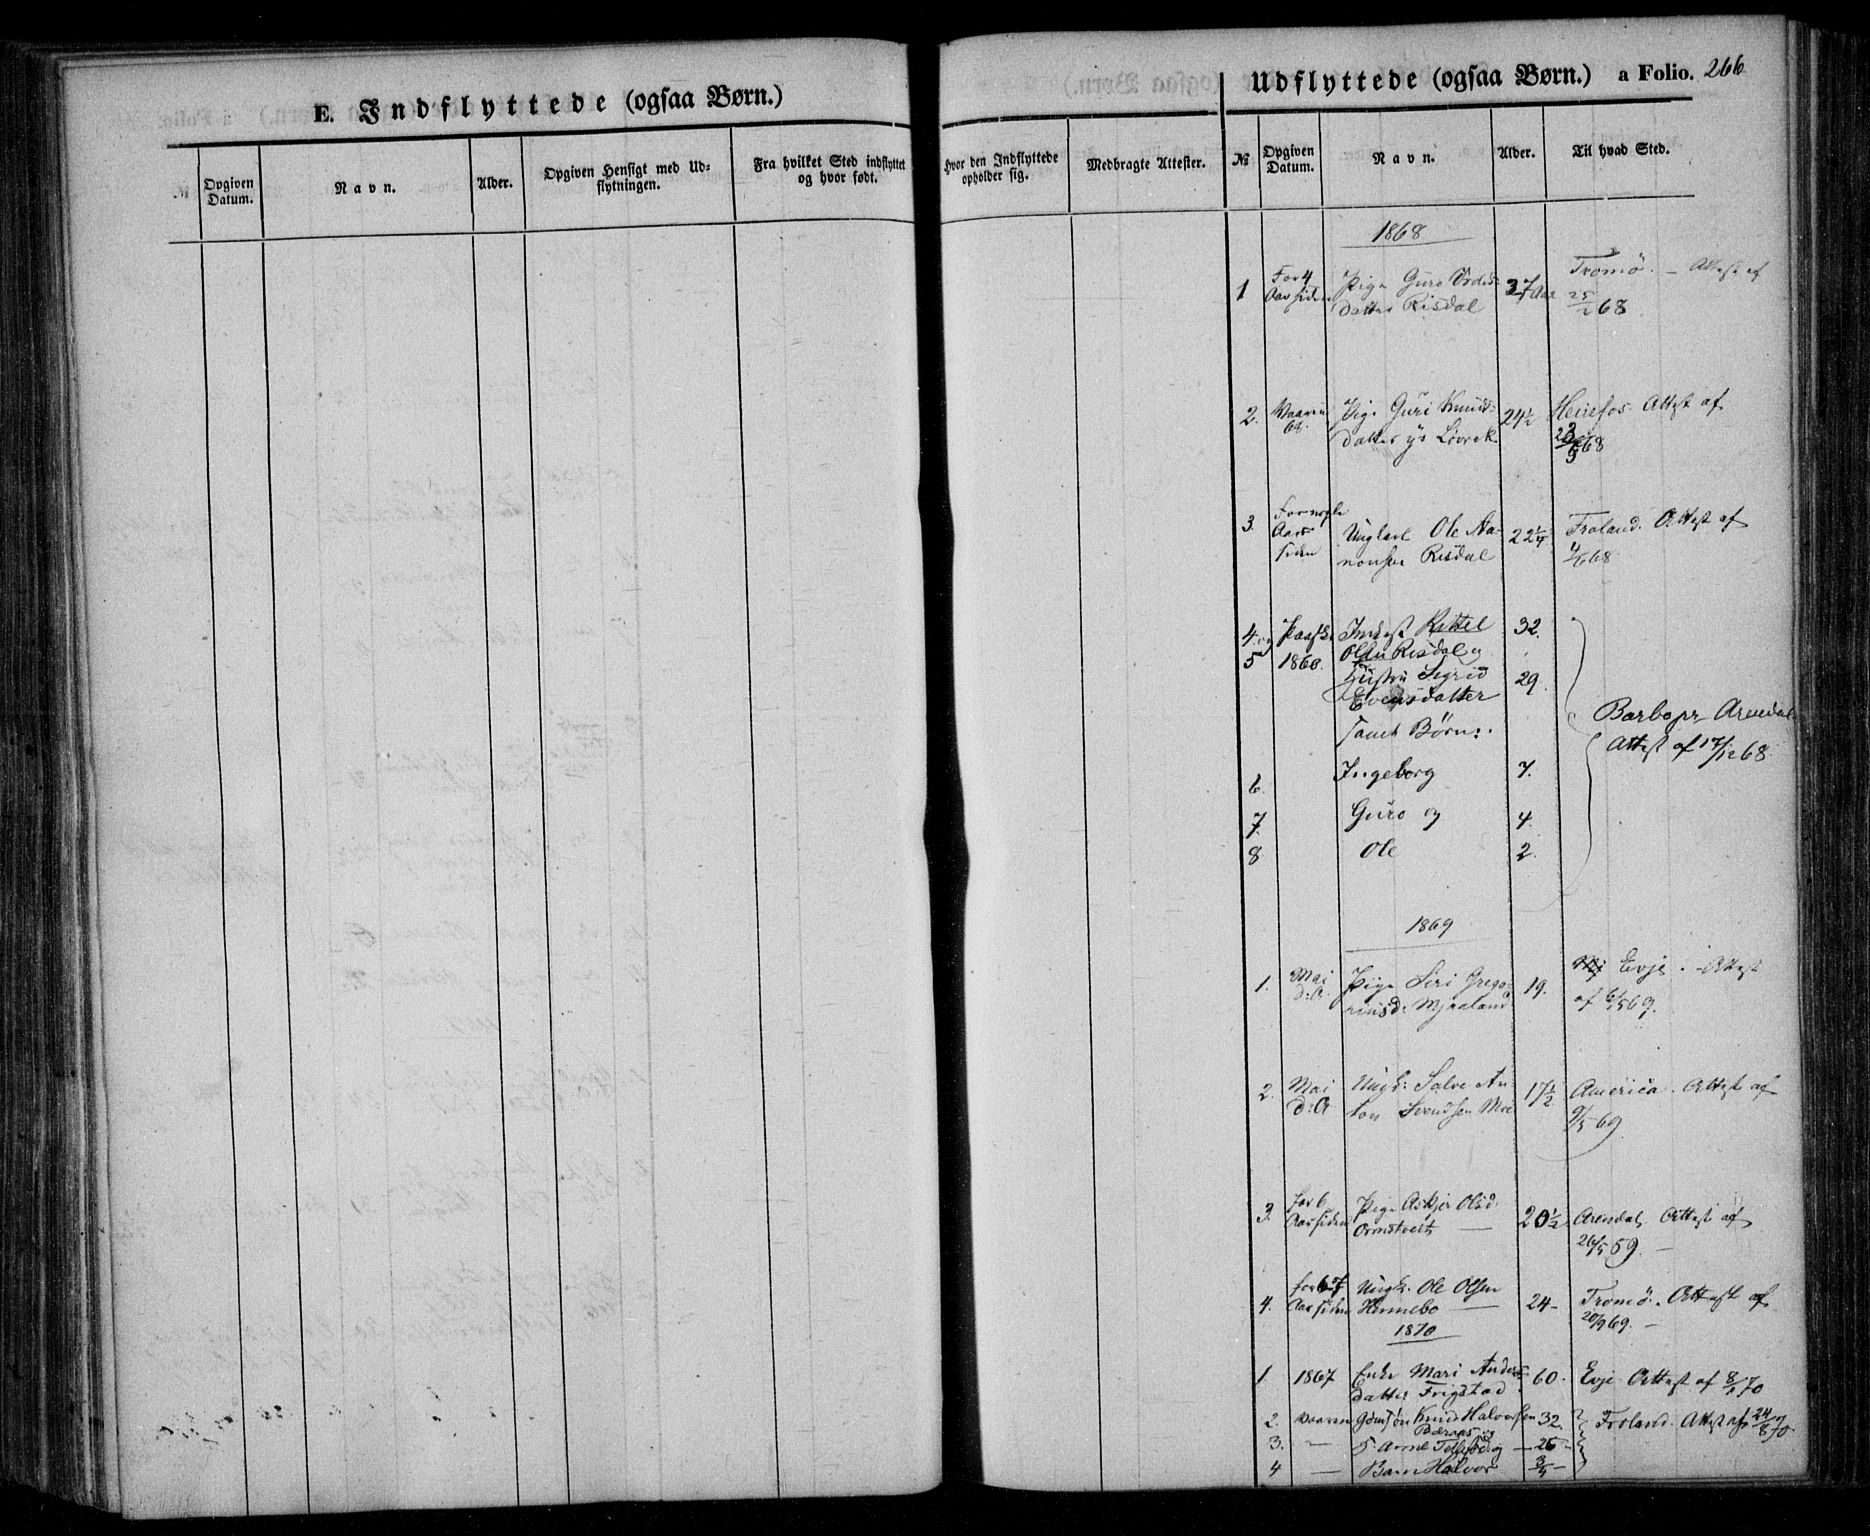 E. Indflyttede (ogsaa Børn.)
Udflyttede (ogsaa Børn.) a Folio. 266
№
Opgiven Datum.
Navn.
Alder.
Opgiven Hensigt med Ud-
flytningen.
Fra hvilket Sted indflyttet
og hvor født.
Hvor den Indflyttede
opholder sig.
Medbragte Attester.
№
Opgiven Datum.
Navn.
Alder.
Til hvad Sted.
1868
1 For 4 Pige Guro 27 Aar Tromö. – Attest af
Aar siden datter Risdal 25/2 68
2. Vaaren Pige Guri Knuds- 24½ Attest af
68. datter Løvrek 68
3. For nogle
Aar Ungkarl Ole Aa- 22¼ Froland. Attest af
siden nonsen Risdal 4/6 68
4. og Paaske Inderst Kittel 32.
5 1860. Olsen Risdal og
Hustru Sigrid 29.
Evensdatter
samt Børn:
Barbo pr Arendal
Attest af 17/12 68
6. Ingeborg 7.
7. Guro og 4.
8 Ole 2.
1869
1. Mai Pige Siri Grego- 19. Evje. – Attest
d: A. riusd: Mjaaland af 6/5 69.
2. Mai Ungk: Salve An- 17½ America. Attest af
d: A ton Svendsen Moe 9/5 69
3. For 6 Pige Askjer Olsd. 20½ Arendal, Attest af
Aar siden Ormstveit — 26/5 59. –
4. For 6 7 Ungk. Ole Olsen 24 – Tromö. Attest af
Aar siden Hinnebo — 20/9 69. –
1870
1 1867 Enke Mari Anders- 60. Evje Attest af 8/1 70
datter Frigstad
2. Vaaren Gaardm Knud Halvorsen 32. Froland. Attest af 24/8 70.
3. — Anne og — 26 –
4 — Barn Halvor 3/4 –